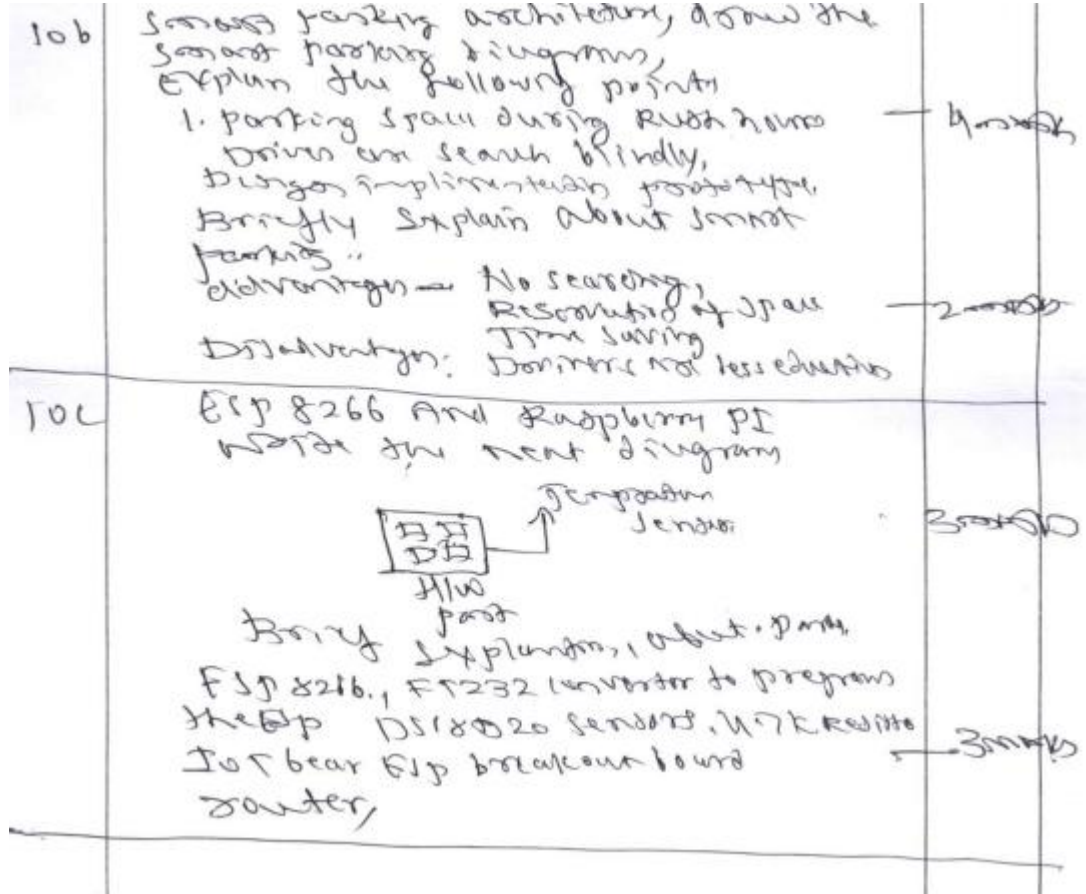 10b Smart parking architecture, draw the
smart parking diagrams,
Explain the following points
1. parking space during Rush hours — 4 marks
Drivers are search blindly,
Design implimentation prototype.
Briefly Explain about smart
parking..
advantages — No searching,
Reservation of space — 2 marks
Time saving
Disadvantages: Drivers not less education
10c ESP 8266 And Raspberry PI
write the neat diagram
Temperature
Sensor 3 marks
H/W
part
Brief Explanation, about parts,
ESP 8266., FT232 convertor to program
the Esp DS18B20 Sensors, 4.7K Resisto
IOT bear ESP breakout board — 3 marks
router,